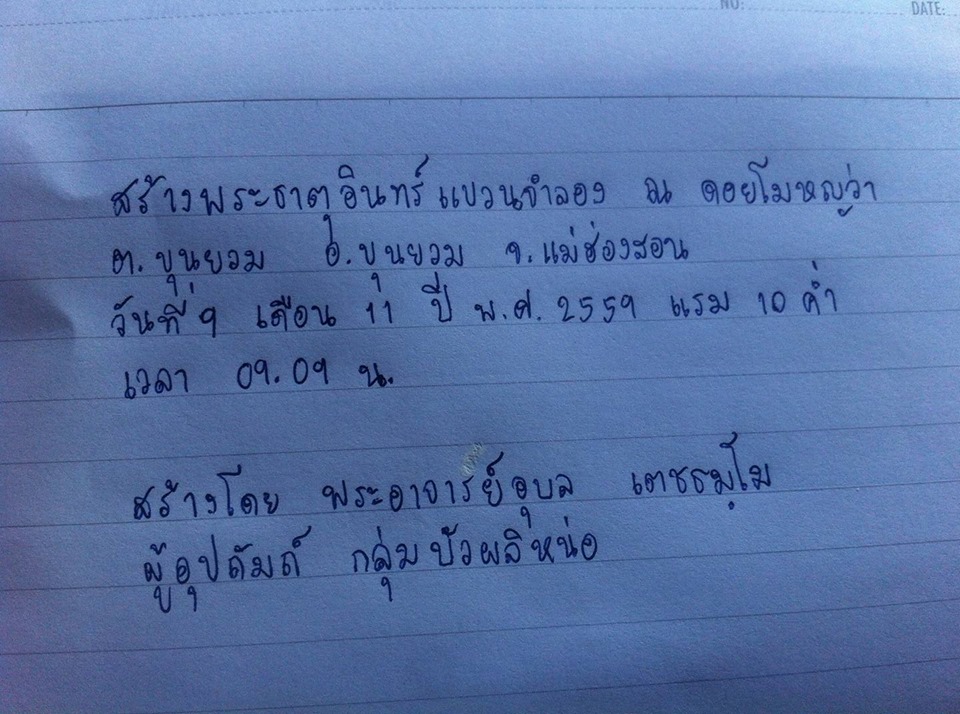 NO: DATE:
สร้างพระธาตุอินทร์แขวนจำลอง ณ ดอยโมหญ่ว่า
ต.ขุนยวม อ.ขุนยวม จ.แม่ฮ่องสอน
วันที่ 9 เดือน 11 ปี พ.ศ. 2559 แรม 10 ค่ำ
เวลา 09.09 น.
สร้างโดย พระอาจารย์อุบล เตชธมฺโม
ผู้อุปถัมถ์ กลุ่มบัวผลิหน่อ